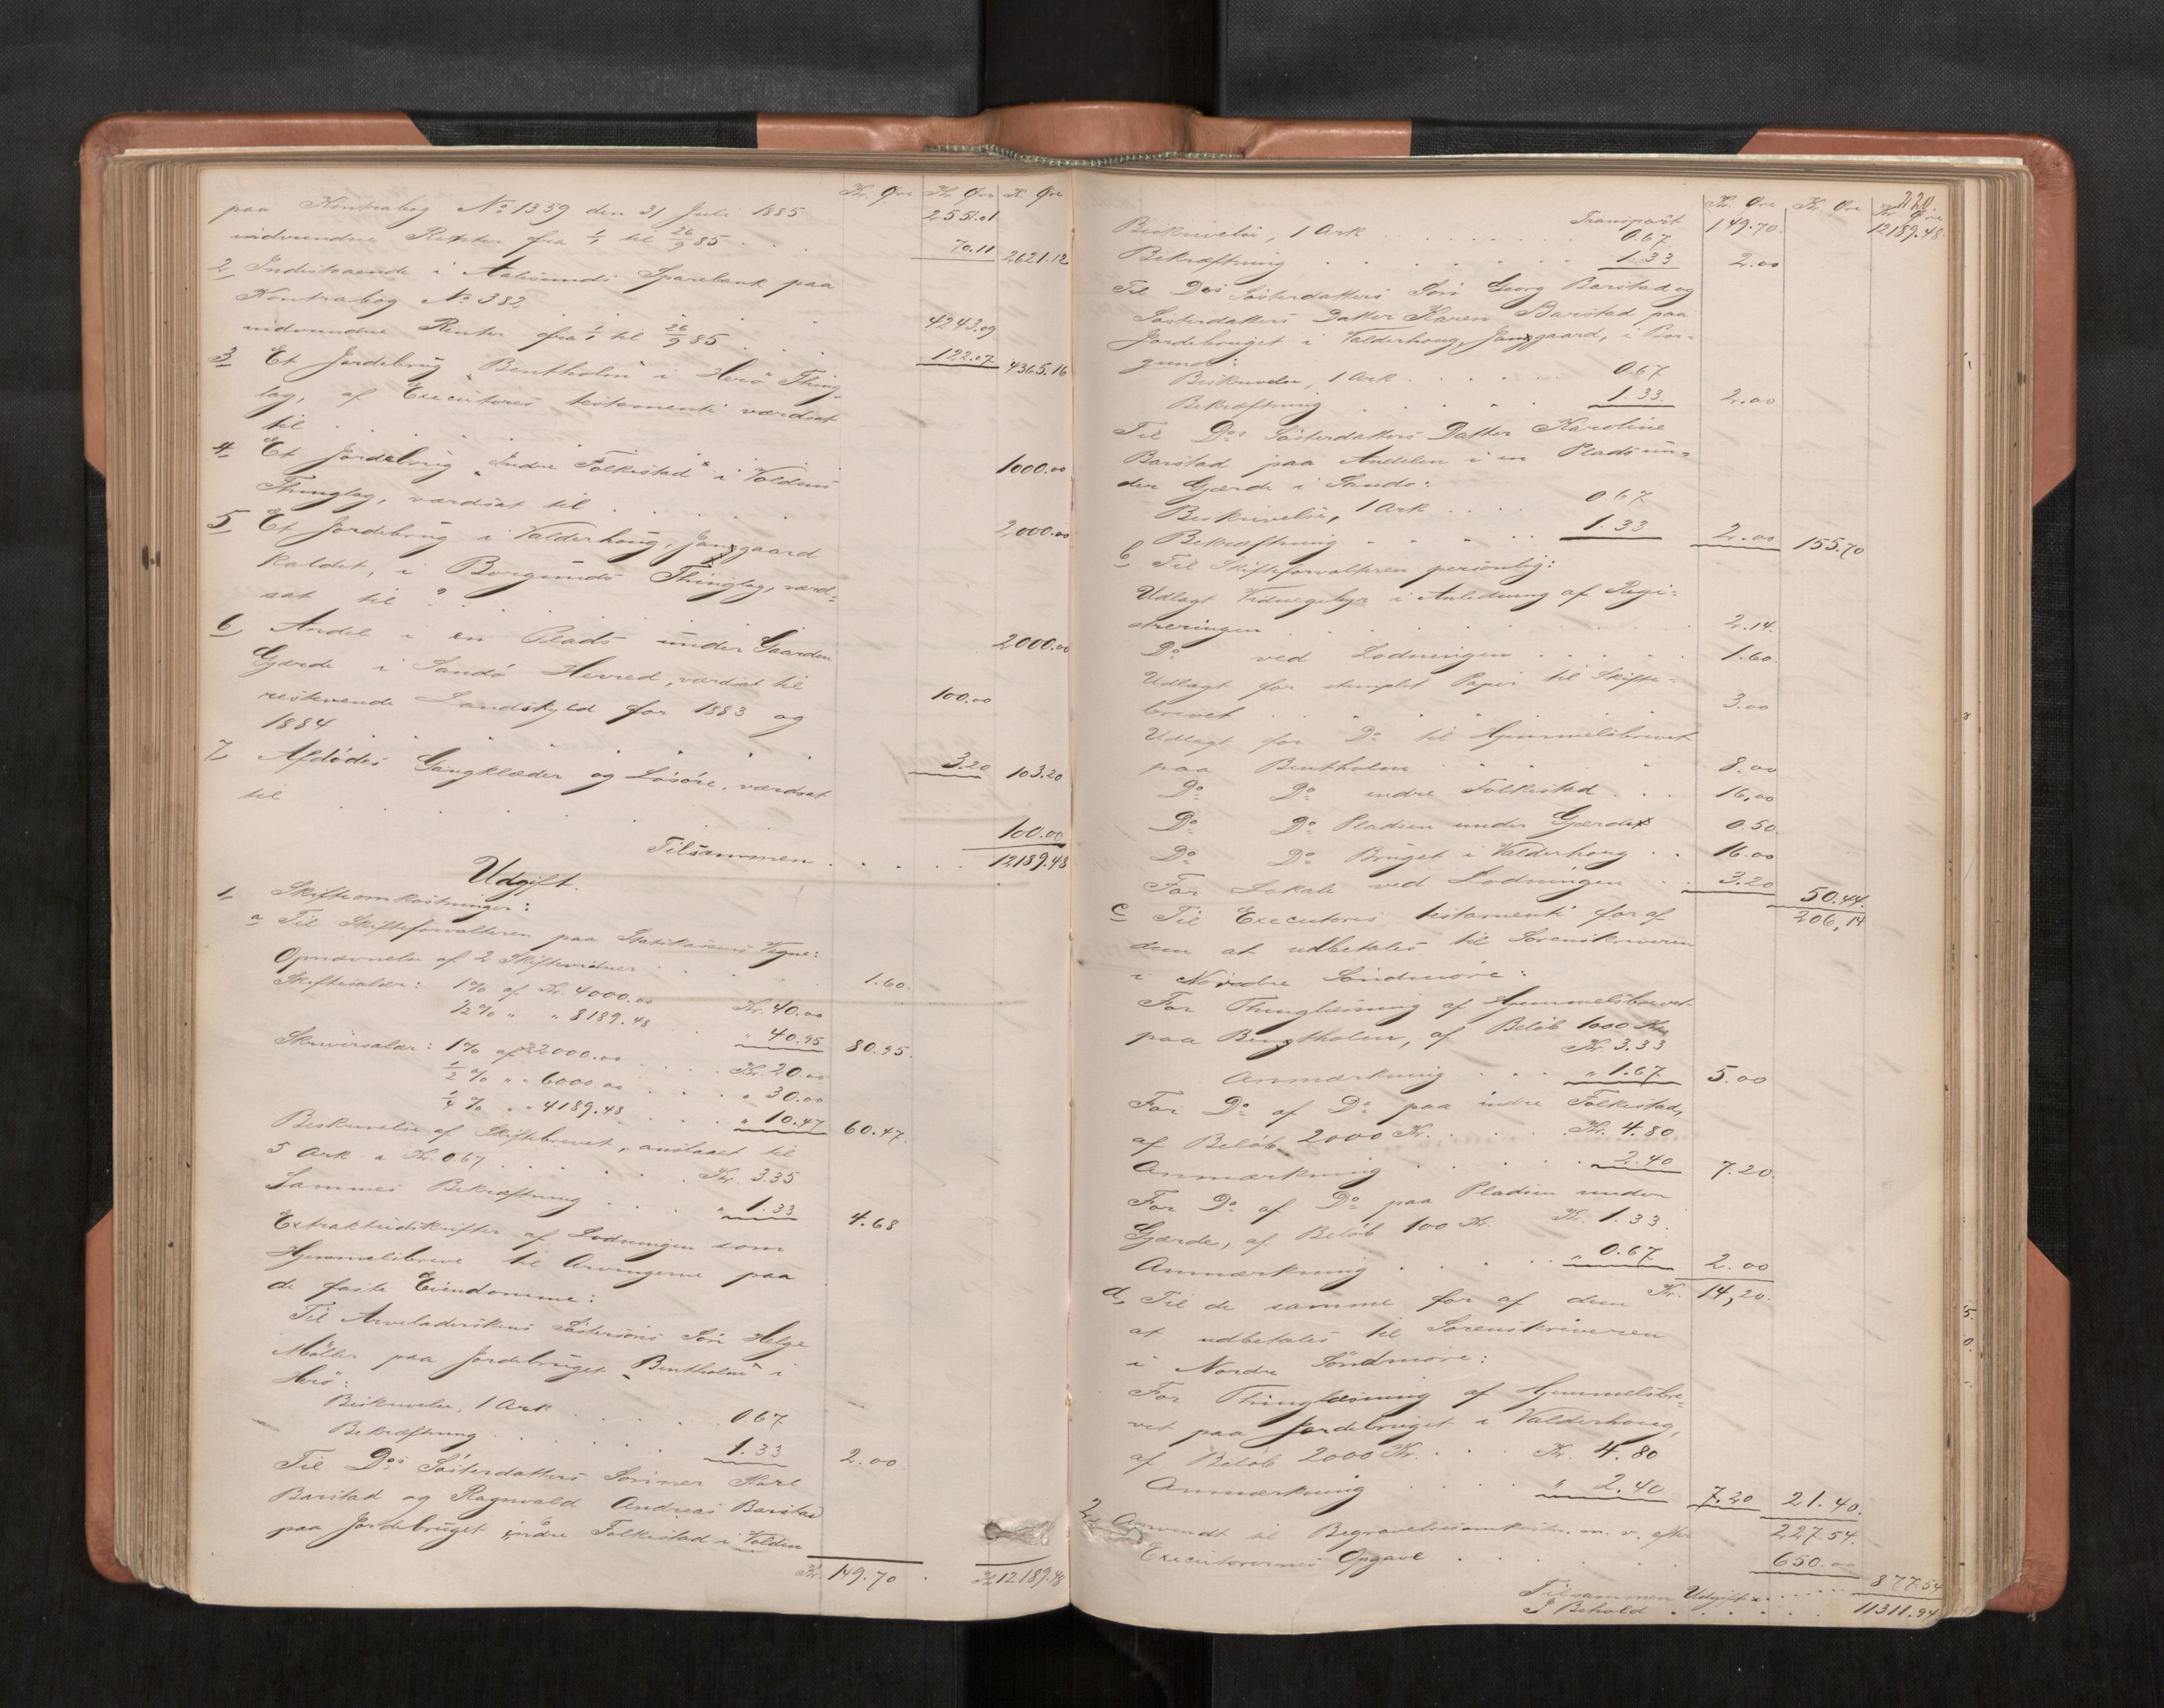 Kr. Øre Kr. Øre Kr. Øre
paa Kontrabog No 1359 den 31 Juli 1885 2551.01
indvundne Renter fra 1/1 til 26/9 85 . . . 70.11 2621.12
2 Indestaaende i Aalesunds Sparebank paa
Kontrabog No 382 . . . . 4243.09
indvundne Renter fra 1/1 til 26/9 85 . . . 122.07 4365.16
3 Et Jordebrug „Bentholm" i Herö Thing-
lag, af Executores testamenti værdsat
til . . . . . . 1000.00
4 Et Jordebrug „Indre Folkestad" i Voldens
Thinglag, værdsat til . . . . . 2000.00
5 Et Jordebrug i Valderhoug, Jangaard
kaldet, i Borgunds Thinglag, værd-
sat til . . . . . . 2000.00
6 Andel i en Plads under Gaarden
Gjærde i Sandö Herred, værdsat til 100.00
resterende Landskyld for 1883 og
1884 . . . . . . 3.20 103.20
7 Afdödes Gangklæder og Lösöre, værdsat
til . . . . . . 100.00
Tilsammen . . . . . 12189.48
Udgift.
1, Skifteomkostninger:
a Til Skifteforvalteren paa Statskassens Vegne:
Opnævnelse af 2 Skiftevidner . . . . 1.60.
Skiftesalær: 1% af Kr. 4000.00 Kr. 40.00
1/2% " " 8189.48 . . " 40.95 80.95.
Skriversalær: 1% af 2000.00 . . . Kr. 20.00
1/2 % " " 6000.00 . . . " 30.00
1/4 % " " 4189.48 . . . " 10.47 60.47.
Beskrivelse af Skiftebrevet, anslaaet til
5 Ark a Kr. 0.67 . . . . . Kr. 3.35
Sammes Bekræftning . . . . " 1.33 4.68
Extraktudskrifter af Lodningen som
Hjemmelsbreve til Arvingerne paa
de faste Eiendomme:
Til Arveladerskens Söstersöns Sön Helge
Möller paa Jordebruget „Bentholm" i
Herö:
Beskrivelse, 1 Ark . . . . . 0.67
Bekræftning . . . . . . 1.33 2.00
Til Dos Sösterdatters Sönner Karl
Barstad og Ragnvald Andreas Barstad
paa Jordebruget indre Folkestad i Volden
Kr. 149.70 . Kr. 12189.48
220.
Kr. Øre Kr. Øre Kr. Øre
Transport 149.70. 12189.48.
Beskrivelse, 1 Ark . . . . . . 0.67.
Bekræftning . . . . . . . 1.33 2.00
Til Dos Sösterdatters Sön Georg Barstad og
Sösterdatters Datter Karen Barstad paa
Jordebruget i Valderhoug, Jangaard, i Bor-
gund:
Beskrivelse, 1 Ark . . . . . 0.67
Bekræftning . . . . . 1.33. 2.00
Til Dos Sösterdatters Datter Karoline
Barstad paa Andelen i en Plads un-
der Gjærde i Sandö:
Beskrivelse, 1 Ark . . . . 0.67
Bekræftning . . . . . 1.33 2.00 155.70
b Til Skifteforvalteren personlig:
Udlagt Vidnegebyr i Anledning af Regi-
streringen . . . . . . . . 2.14.
Do ved Lodningen . . . . . 1.60.
Udlagt for stemplet Papir til Skifte-
brevet . . . . . . . . 3.00
Udlagt for Do til Hjemmelsbrevet
paa Bentholm . . . . . . 8.00
Do Do indre Folkestad . . . 16,00
Do Do Pladsen under Gjærde 0.50.
Do Do Bruget i Valderhoug . . 16.00
For Lokale ved Lodningen . . 3.20 50.44.
206,14
c Til Executores testamenti for af
dem at udbetales til Sorenskriveren
i Nordre Söndmöre:
For Thinglæsning af Hjemmelsbrevet
paa Bentholm, af Belöb 1000 Kr.
Kr. 3.33
Anmærkning . . . " 1.67. 5.00
For Do af Do paa indre Folkestad,
af Belöb 2000 Kr. . . . . Kr. 4.80
Anmærkning . . . . . 2.40 7.20.
For Do af Do paa Pladsen under
Gjærde, af Belöb 100 Kr. Kr. 1.33.
Anmærkning . . . . . " 0.67. 2.00
Kr. 14,20.
d, Til de samme for af dem
at udbetales til Sorenskriveren
i Nordre Söndmöre:
For Thinglæsning af Hjemmelsbre-
vet paa Jordebruget i Valderhoug,
af Belöb 2000 Kr. . . . Kr. 4.80
Anmærkning . . . . " 2.40 7.20 21.40.
227.54.
2 Anvendt til Begravelsesomkostn. m. v. efter
Executorernes Opgave . . . . . 650.00
877.54
Tilsammen Udgift . . . . . .
I Behold . . . . . 11311.94